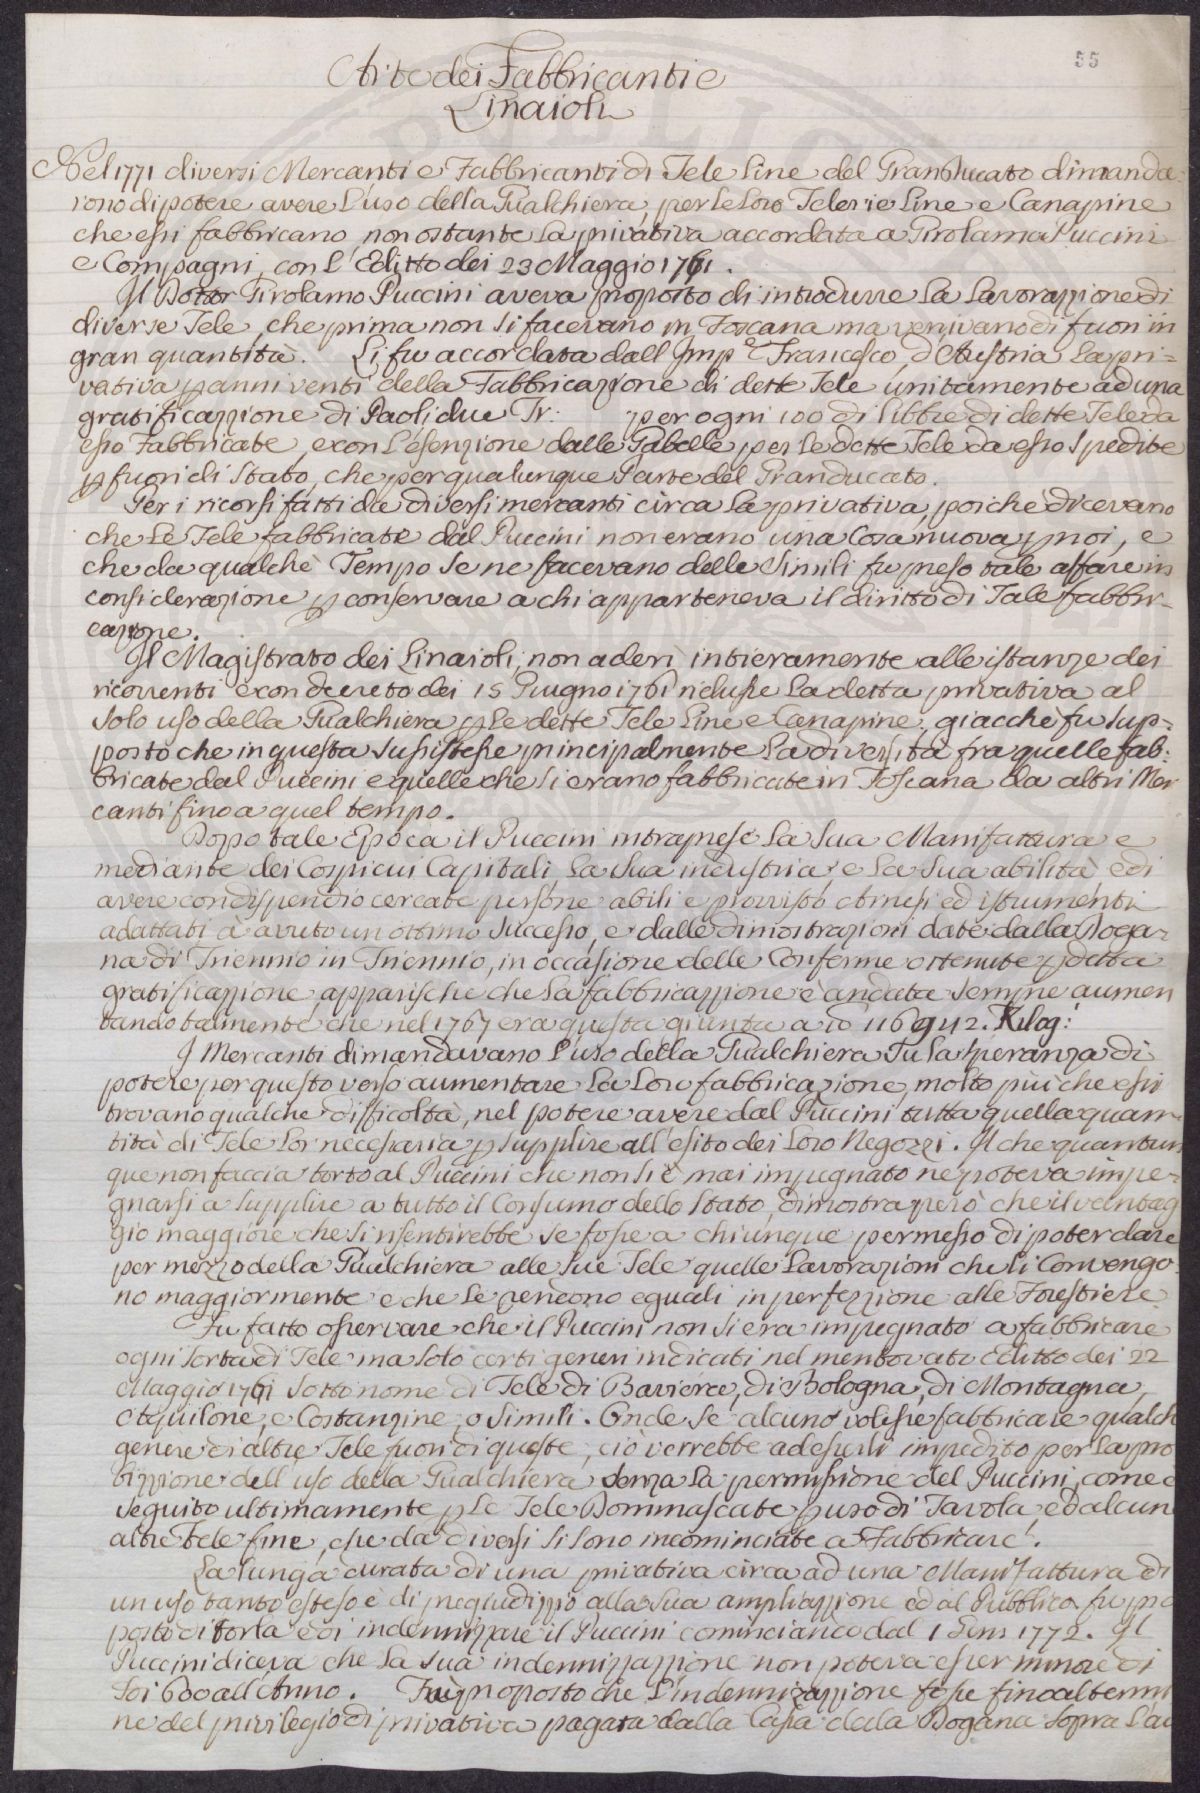 55
Arte dei Fabbricanti e
Linaioli
Nel 1771 diversi Mercanti e Fabbricanti di Tele Line del Granducato dimanda-
rono di potere avere l'uso della Gualchiera, per le Loro Telerie Line e Canapine
che essi fabbricano, non ostante la privativa accordata a Girolamo Puccini
e Compagni, con l'Editto dei 23 Maggio 1761.
Il Dottor Girolamo Puccini aveva proposto di introdurre la lavorazione di
diverse Tele, che prima non si facevano in Toscana ma venivano di fuori in
gran quantità. Li fu accordata dall Imp.e Francesco, d'Austria la pri=
vativa p anni venti della Fabbricazzione di dette Tele unitamente ad una
gratificazzione di Paoli due Tr: per ogni 100 di libbre di dette Tele da
esso Fabbricate, e con l'esenzione dalle Gabelle, per le dette Tele da esso Spedite
p fuori di Stato, che per qualunque Parte del Granducato.
Per i ricorsi fatti da diversi mercanti circa la privativa, poichè dicevano
che le Tele fabbricate dal Puccini non erano una Cosa nuova p noi, e
che da qualchè Tempo se ne facevano delle Simili fu preso tale affare in
considerazione p conservare a chi apparteneva il diritto di Tale fabbri-
cazione.
Il Magistrato dei Linaioli, non aderì intieramente alle istanze dei
ricorrenti e con decreto dei 15 Giugno 1761 ridusse la detta privativa al
solo uso della Gualchiera p le dette Tele Line e Canapine, giacchè fu sup-
posto che in questa sussistesse principalmente la diversità fra quelle fab:
bricate dal Puccini e quelle che si erano fabbricate in Toscana da altri Mer
canti fino a quel tempo.
Dopo tale Epoca il Puccini intraprese la Sua Manifattura e
mediante dei Cospicui Capitali, la Sua industria, e la Sua abilità e di
avere con dispendio cercate persone abili e provvisto Arnesi ed istrumenti
adattati à avuto un ottimo Successo, e dalle dimostrazioni date dalla Doga-
na di Triennio in Triennio, in occasione delle Conferme ottenute p detta
gratificazzione, apparische che la fabbricazzione è andata sempre aumen
tando talmente che nel 1767 era questa giunta a 116912. Kilog:
I Mercanti dimandavano l'uso della Gualchiera Su la Speranza di
potere per questo verso aumentare la Loro fabbricazione, molto più che essi
trovano qualche difficoltà, nel potere avere dal Puccini tutta quella quan-
tità di Tele Lor necessaria p supplire all'esito dei Loro Negozzi. Il che quantun
que non faccia torto al Puccini che non si è mai impegnato ne poteva impe-
gnarsi a supplire a tutto il Consumo dello Stato, dimostra però che il vantag
gio maggiore che si risentirebbe se fosse a chiunque permesso di poter dare
per mezzo della Gualchiera alle Sue Tele quelle Lavorazioni che li Convengo
no maggiormente e che le rendono eguali in perfezzione alle Forestiere
Fu fatto osservare che il Puccini non si era impegnato a fabbricare
ogni Sorta di Tele ma solo certi generi indicati nel mentovato Editto dei 22
Maggio 1761 sotto nome di Tele di Baviera, di Bologna, di Montagna,
Aquilone, e Costanzine, o Simili. Onde se alcuno volesse fabbricare qualch
genere di altre Tele fuori di queste, ciò verrebbe ad esserli impedito per la pro
bizzione dell'uso della Gualchiera senza la permissione del Puccini, come è
Seguito ultimamente p le Tele Dommascate p uso di Tavola, ed alcun
altre Tele fine, che da diversi si sono incominciate a Fabbricare.
La lunga durata di una privativa circa ad una Manifattura di
un uso tanto esteso è di pregiudizzio alla Sua ampliazzione ed al Pubblico fu pro
posto di torla e di indennizzare il Puccini cominciando dal 1 Genn 1772. Il
Puccini diceva che la Sua indennizzazzione non poteva esser minore di
600 all'Anno. Fu proposto che l'indennizazzione fosse fino al termi
ne del privilegio di privativa pagata dalla Cassa della Dogana sopra l'au